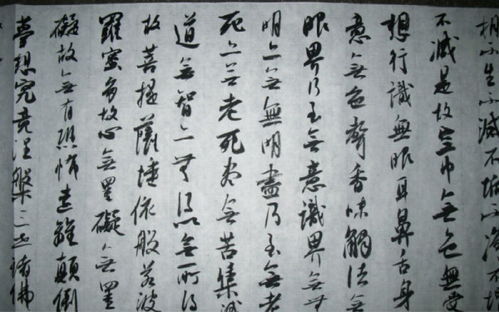 相不生不滅不垢不淨不增
不減是故空中無色無受
想行識無眼耳鼻舌身
意無色聲香味觸法無
眼界乃至無意識界無無
明亦無無明盡乃至無老
死亦無老死盡無苦集滅
道無智亦無得以無所得
故菩提薩埵依般若波
羅蜜多故心無罣礙無罣
礙故無有恐怖遠離顛倒
夢想究竟涅槃三世諸佛